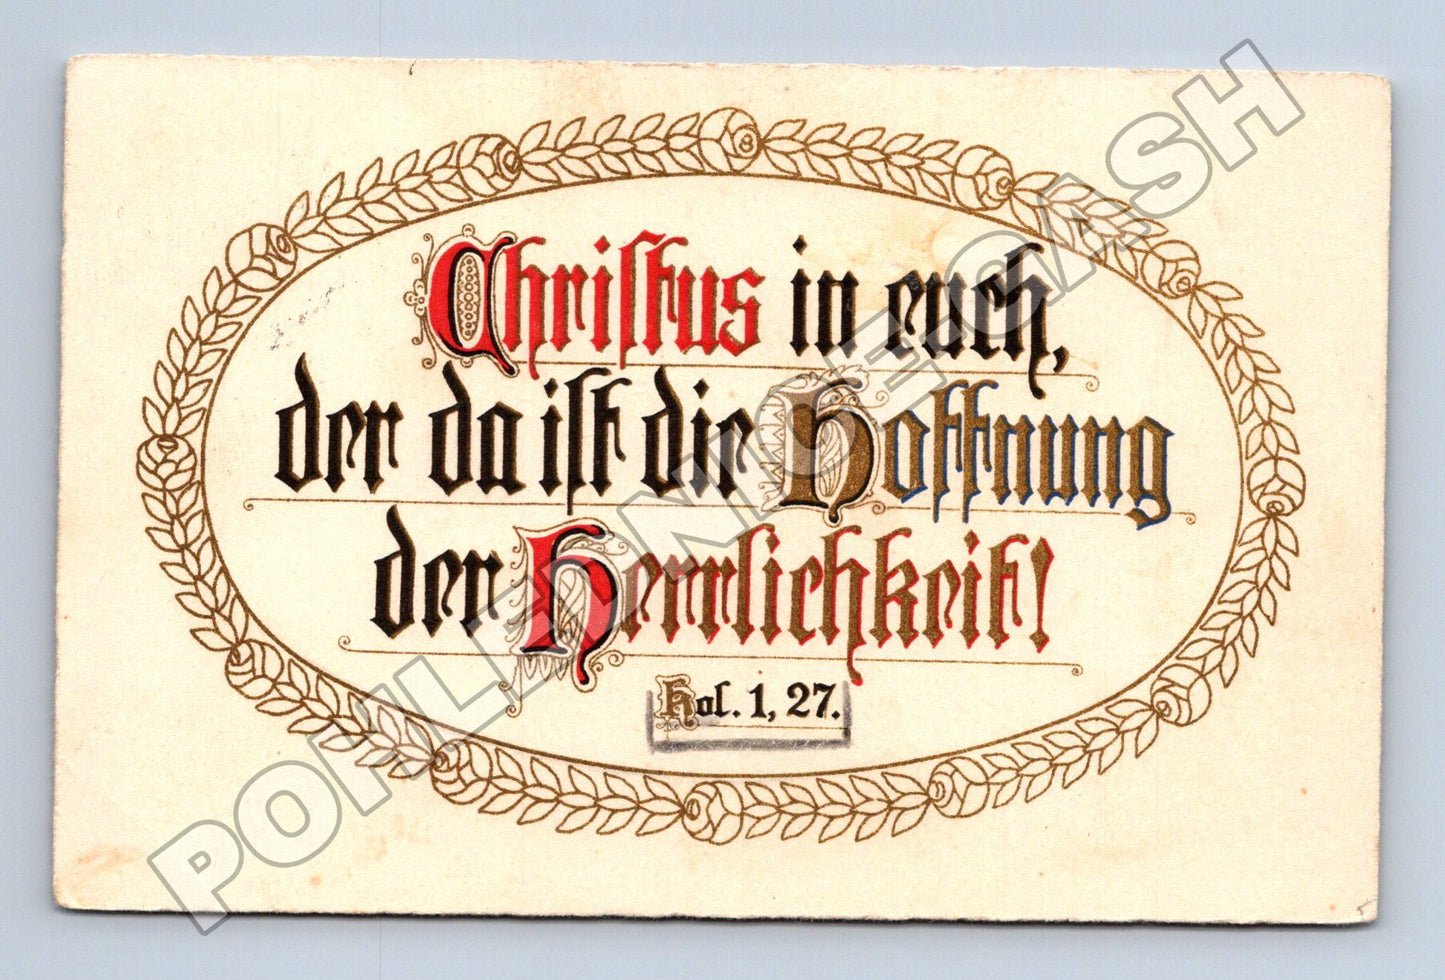 Christus in euch,
der da ist die Hoffnung
der Herrlichkeit!
Kol. 1, 27.
POHLEDNICE-CASH